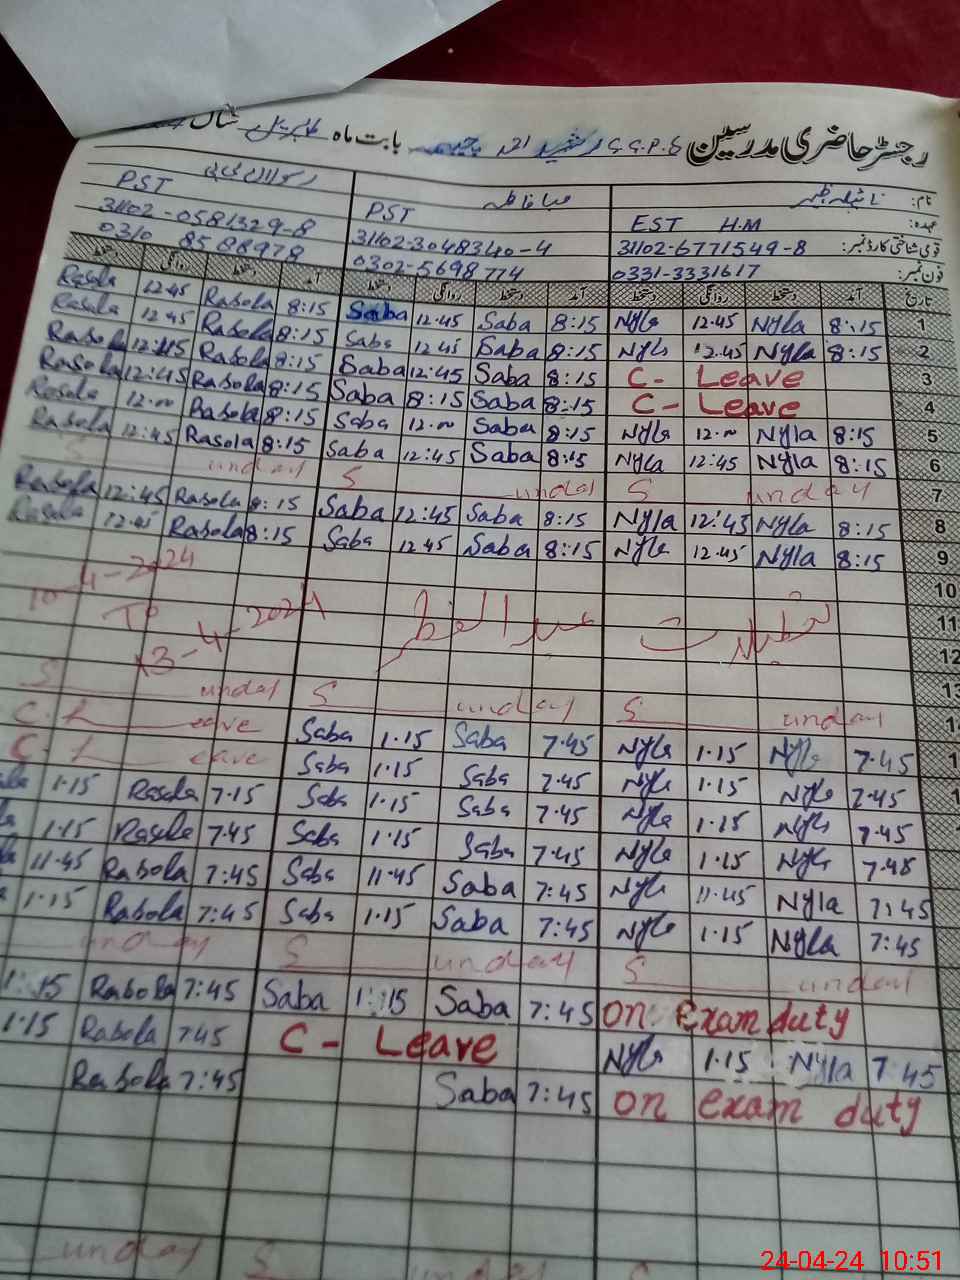 رجسٹر حاضری مدرسین G.G.P.S رشید بابت ماہ سال
نام: نائیلہ صبا فاطمہ
عہدہ: EST H.M PST PST
قومی شناختی کارڈ نمبر: 31102-6771549-8 31102-3048340-4 31102-0581329-8
فون نمبر: 0331-3331617 0302-5698774 0310 8588978
تاریخ آمد دستخط روانگی دستخط آمد دستخط روانگی دستخط آمد دستخط روانگی دستخط
Rasola 12:45 Rasola 8:15 Saba 12.45 Saba 8:15 Nyla 12.45 Nyla 8:15 1
Rasola 12:45 Rasola 8:15 Saba 12.45 Saba 8:15 Nyla 12.45 Nyla 8:15 2
Rasola 12:45 Rasola 8:15 Saba 12:45 Saba 8:15 C- Leave 3
Rasola 12:45 Rasola 8:15 Saba 8:15 Saba 8:15 C- Leave 4
Rasola 12.00 Rasola 8:15 Saba 12.00 Saba 8:15 Nyla 12.00 Nyla 8:15 5
Rasola 12:45 Rasola 8:15 Saba 12:45 Saba 8:15 Nyla 12:45 Nyla 8:15 6
S unday S unday S unday 7
Rasola 12:45 Rasola 8:15 Saba 12:45 Saba 8:15 Nyla 12:45 Nyla 8:15 8
Rasola 12.45 Rasola 8:15 Saba 12.45 Saba 8:15 Nyla 12.45 Nyla 8:15 9
10
10-4-2024 11
To 12
13-4-2024 تعطیلات عید الفطر
13
S unday S unday S unday 14
C. L eave Saba 1.15 Saba 7.45 Nyla 1.15 Nyla 7.45
C. L eave Saba 1.15 Saba 7.45 Nyla 1.15 Nyla 7.45
1.15 Rasola 7.15 Saba 1.15 Saba 7.45 Nyla 1.15 Nyla 7.45
1.15 Rasola 7.45 Saba 1.15 Saba 7.45 Nyla 1.15 Nyla 7.45
11.45 Rabola 7:45 Saba 11.45 Saba 7:45 Nyla 11.45 Nyla 7:45
1.15 Rabola 7:45 Saba 1.15 Saba 7:45 Nyla 1.15 Nyla 7:45
unday S unday S unday
1:15 Rabola 7:45 Saba 1:15 Saba 7:45 on exam duty
1.15 Rabola 7.45 C- Leave Nyla 1.15 Nyla 7.45
Rabola 7:45 Saba 7:45 on exam duty
unday S unday S
24-04-24 10:51